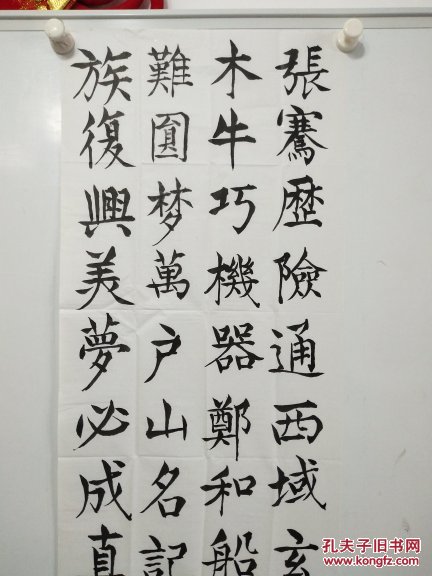 張騫歷險通西域玄
木牛巧機器鄭和船
難圓梦萬户山名記
族復興美夢必成真
孔夫子旧书网
www.kongfz.com